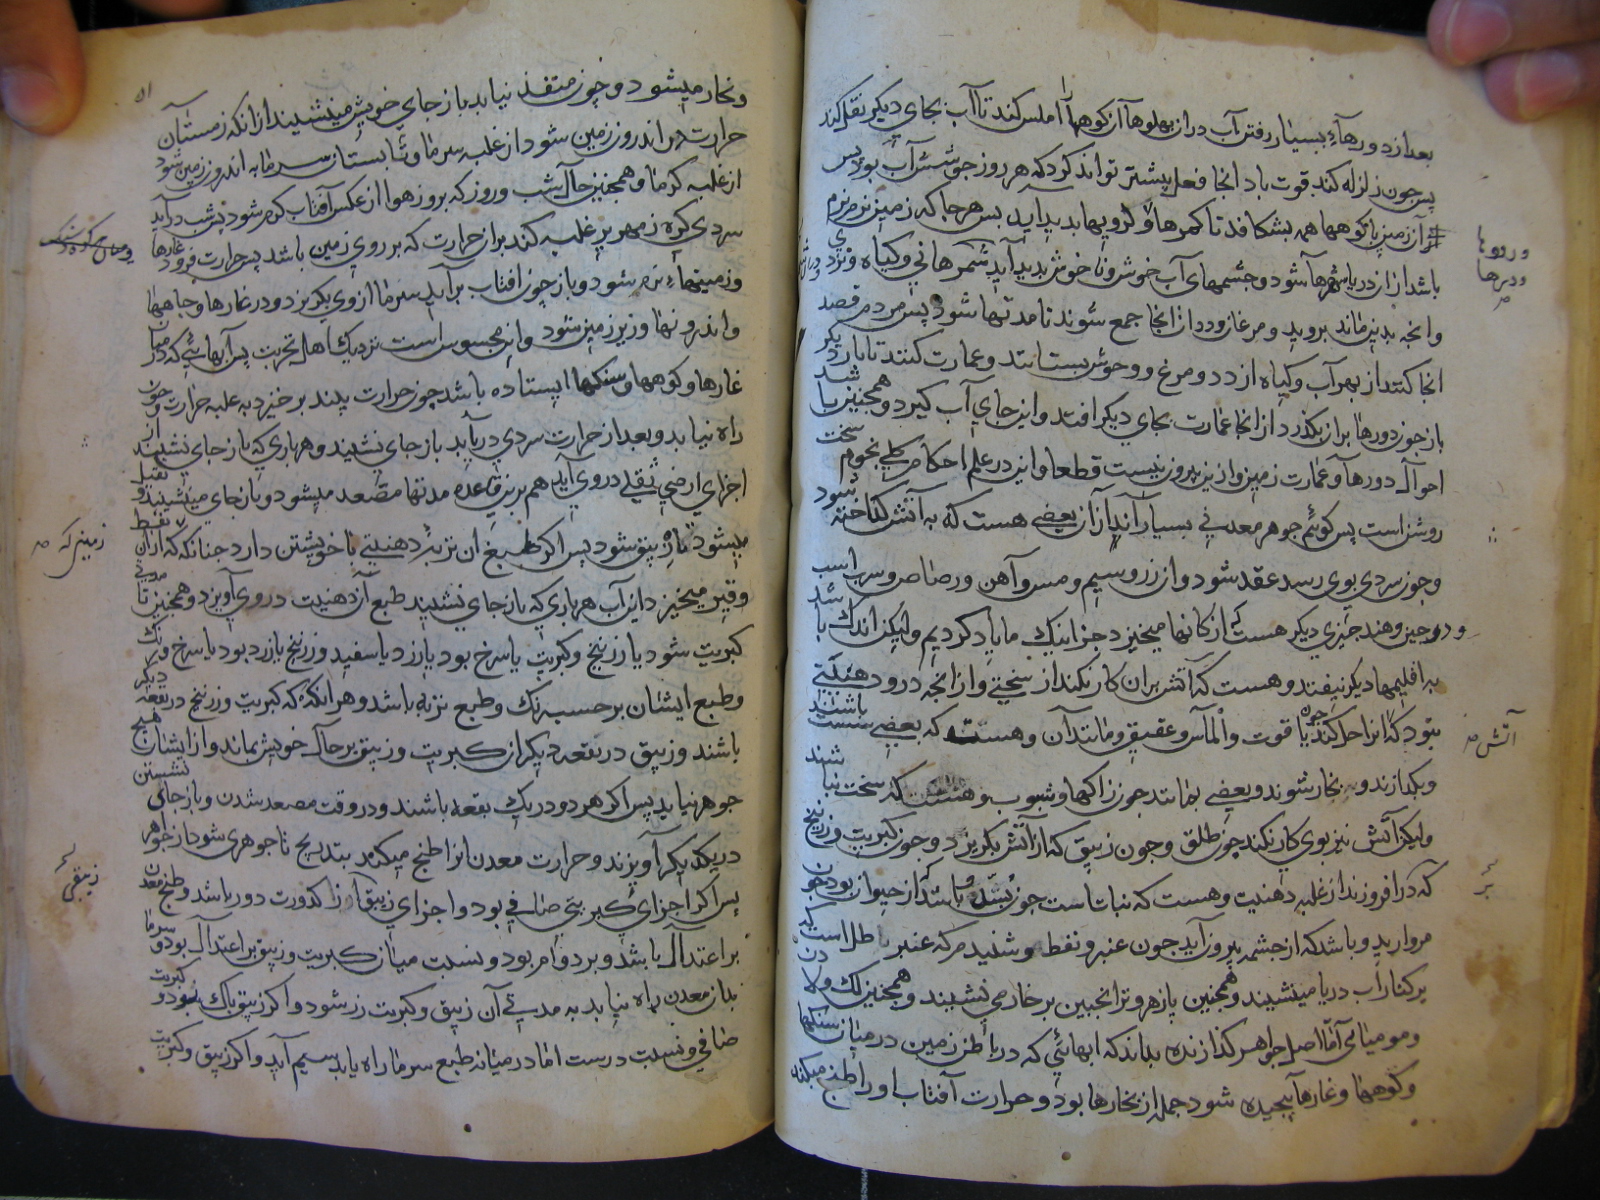 بعد از دورهاء بسیار رفتن آب دراز پهلوها آن کوهها را املس کند تا آب بجای دیگر نقل کند
پس چون زلزله کند قوت باد آنجا فعل بیشتر تواند کرد که هر روز جوشش آب بود پس
آن زمین با کوهها همه بشکافد تا کمرها و کرویها بدید اید پس هرجا که زمین نرم نرم
باشد از آن دریا شهرها شود و چشمهای آب خوش و نا خوش بدید آید شمرهائی و کیاه و نزدی
وانجه بدین ماند بروید و مرغان و ددان آنجا جمع شوند تا مدتها شود پس مردم قصد
آنجا کنند از بهر آب و کیاه از دد و مرغ و وحوش بستانند و عمارت کنند تا بار دیکر
باز چون دورها بران بکذرد از آنجا عمارت بجای دیکر افتد و این جای آب کیرد و همجنین باشد
احوال دورها و عمارت زمین و ازین بیرون نیست قطعا و این در علم احکام کلی نجوم سخت
روشن است پس کوئیم جوهر معدنی بسیار اند از آن بعضی هست که به آتش کداخته شود
و چون سردی بوی رسد عقد شود و ان زر و سیم و مس و آهن و رصاص و سرب است
و در چین و هند چیزی دیکر هست که از کانها میخیزد جز اینک ما یاد کردیم ولیکن اندک باشد
به اقلیمها دیکر نیفتد و هست که آتش بران کار نکند از سختی و از آنجه درو دهنیتی
نبود که آنرا حل کند چون یاقوت و الماس و عقیق و مانند آن و هست که بعضی سست باشند
و بکدازند و بخار شوند و بعضی بمانند چون زاکها و شبوب و هست که سخت نباشند
ولیکن آتش نیز بوی کار نکند چون طلق و چون زیبق که از آتش بکریزد و چون کبریت و زرنیخ
که در افروزند از غلبه دهنیت و هست که نبات است چون بسد و باشد از حیوان بود چون
مروارید و باشد که از چشمه بیرون آید چون عنبر و نفط و شنیدم که عنبر باطل است که
بر کنار آب دریا مینشیند و همجنین پازهر و ترانجبین بر خار می نشیند و همجنین لک و لادن
و مومیائی اما اصل جواهر کدازنده بداند که ابهائی که در باطن زمین در میان سنکها
و کوهها و غارها پیچیده شود جمله از بخارها بود و حرارت آفتاب او را طبخ میکند
و درووها
و درها
آتش صح
۵۱
و بخار میشود و چون متنفذ نیابد باز جای خویش مینشیند از آنکه زمستان
حرارت در اندرون زمین شود از غلبه سرما و تابستان سرما به اندرون زمین شود
از غلبه کرما و همجنین حال شب و روز که بروز هوا از عکس آفتاب کرم شود و شب در آید
سردی کره زمهریر غلبه کند بران حرارت که بر روی زمین باشد پس حرارت فرود غارها
و زمینهاء نرم شود و باز چون آفتاب بر آید سرما از وی بکریزد و در غارها و چاهها
و اندرونها و زیر زمین شود و این محسوس است نزدیک اهل تجربت پس آبهائی که در میان
غارها و کوهها و سنکها ایستاده باشد چون حرارت بلند بر خیزد به غلبه حرارت و چون
راه نیابد و بعد از حرارت سردی دریابد باز جای نشیند و هر باری که باز جای نشیند از
اجزای ارضی ثقلی در وی آید هم برین قاعده مدتها مصعد میشود و باز جای مینشیند و ثقیل
میشود تا زیبق شود پس اکر طبع آن تربت دهنیتی با خویشتن دارد چنانکه که از آن نفط
و قیر میخیزد این آب هر باری که باز جای نشیند طبع آن دهنیت در وی آویزد و همجنین تا مدتی
کبریت شود یا زرنیخ و کبریت یا سرخ بود یا زرد یا سفید و زرنیخ یا زرد بود یا سرخ و رنک
و طبع ایشان بر حسب رنک و طبع تربه باشد و هر آنکه که کبریت و زرنیخ در بقعه دیکر
باشند و زیبق در بقعه دیکر از کبریت و زیبق بر حال خویش بماند و از ایشان هیج
جوهر نیاید پس اکر هر دو در یک بقعه باشند و در وقت مصعد شدن و باز جای نشستن
در یکدیکر آویزند و حرارت معدن آنرا طبخ میکند بتدریج تا جوهری شود از جواهر
پس اکر اجزای کبریتی صافی بود و اجزای زیبق از کدورت دور باشد و طبخ معدن
بر اعتدال باشد و بر دوام بود و نسبت میان کبریت و زیبق بر اعتدال بود و سرما
بدان معدن راه نیابد به مدتی آن زیبق و کبریت زر شود و اکر زیبق پاک بود و کبریت
صافی و نسبت درست اما در میانه طبع سرما راه یابد سیم آید و اکر زیبق و کبریت
زمینی که صح
زیبقی